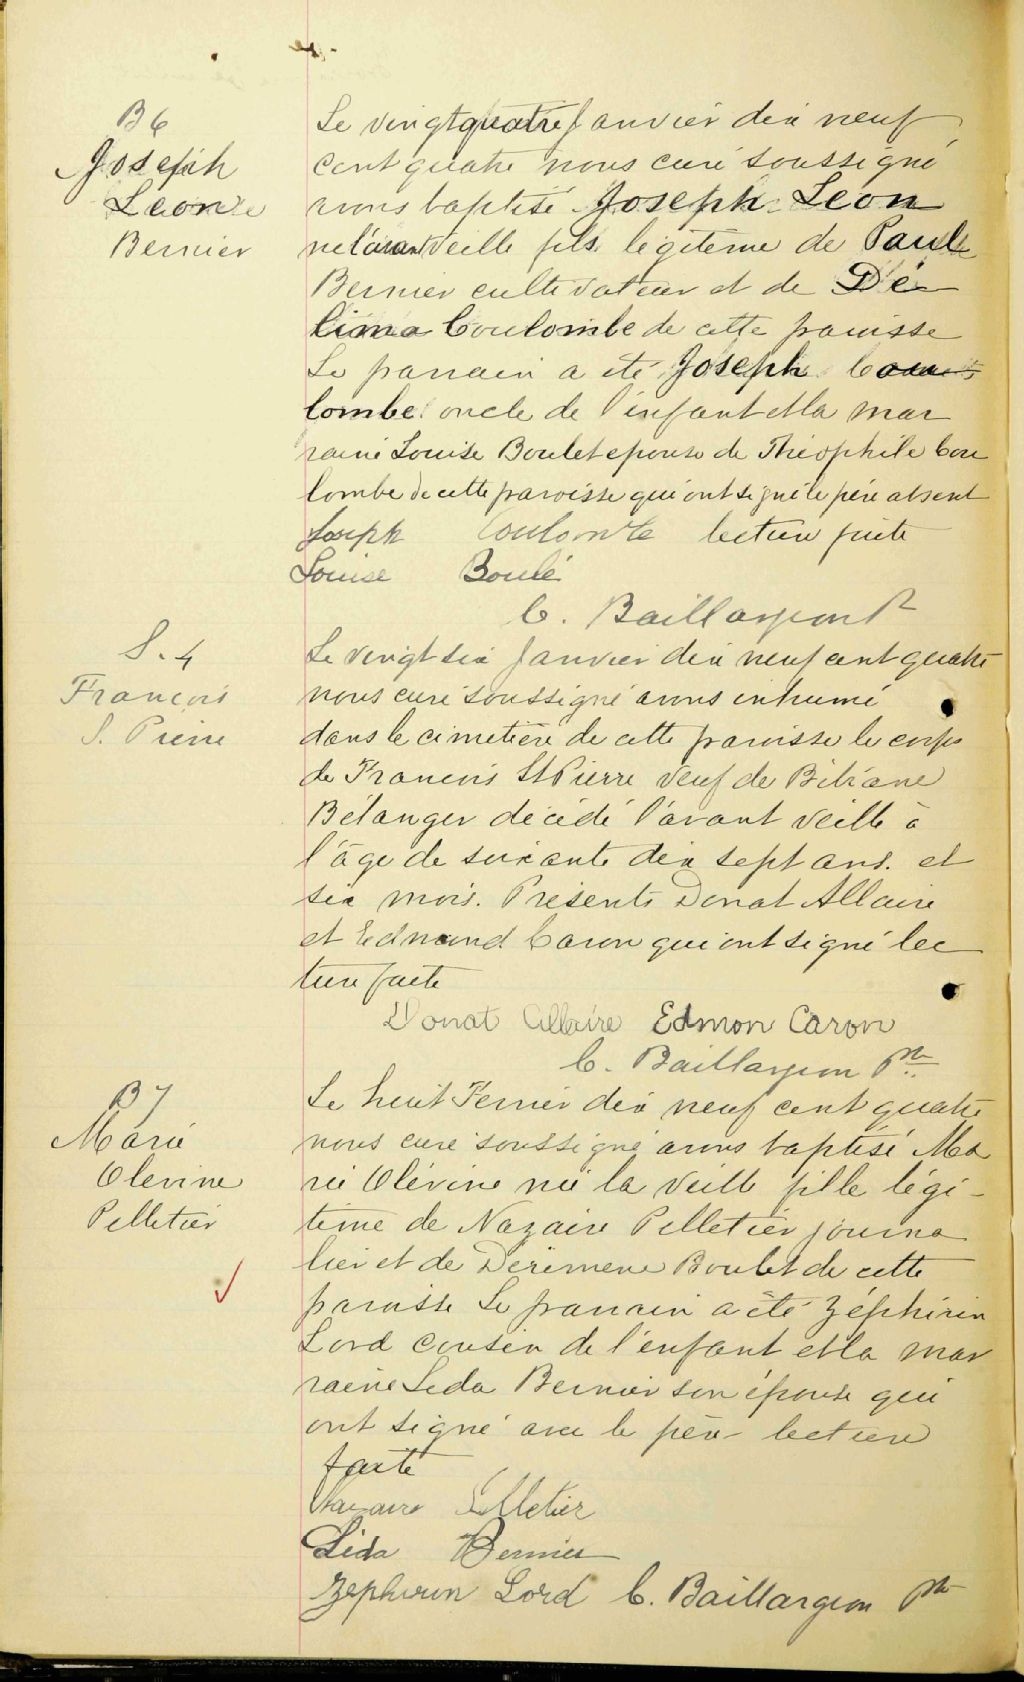 B 6
Joseph
Leon
Bernier
Le vingt quatre Janvier dix neuf
cent quatre nous curé soussigné
avons baptisé Joseph Leon
né l'avant veille fils légitime de Paul
Bernier cultivateur et de Dé
lima Coulombe de cette paroisse
Le parrain a été Joseph Cou
lombe oncle de l'enfant et la mar
raine Louise Boulet epouse de Théophile Cou
lombe de cette paroisse qui ont signé le père absent
Joseph Coulombe lecture faite
Louise Boulé
C. Baillargeon Ptre
S. 4
Francois
S. Pierre
Le vingt six Janvier dix neuf cent quatre
nous curé soussigné avons inhumé
dans le cimetière de cette paroisse le corps
de Francois St Pierre veuf de Bibiane
Bélanger décédé l'avant veille à
l'âge de soixante dix sept ans. et
six mois. Présents Donat Allaire
et Edmond Caron qui ont signé lec
ture faite
Donat Allaire Edmon Caron
C. Baillargeon Ptre
B 7
Marie
Olevine
Pelletier
Le huit Fevrier dix neuf cent quatre
nous curé soussigné avons baptisé Ma
rie Olévine née la veille fille légi-
time de Nazaire Pelletier journa
lier et de Derimene Boulet de cette
paroisse Le parrain a été Zéphirin
Lord cousin de l'enfant et la mar
raine Leda Bernier son épouse qui
ont signé avec le père lecture
faite
Nazaire Pelletier
Léda Bernier
Zephirin Lord C. Baillargeon Ptre